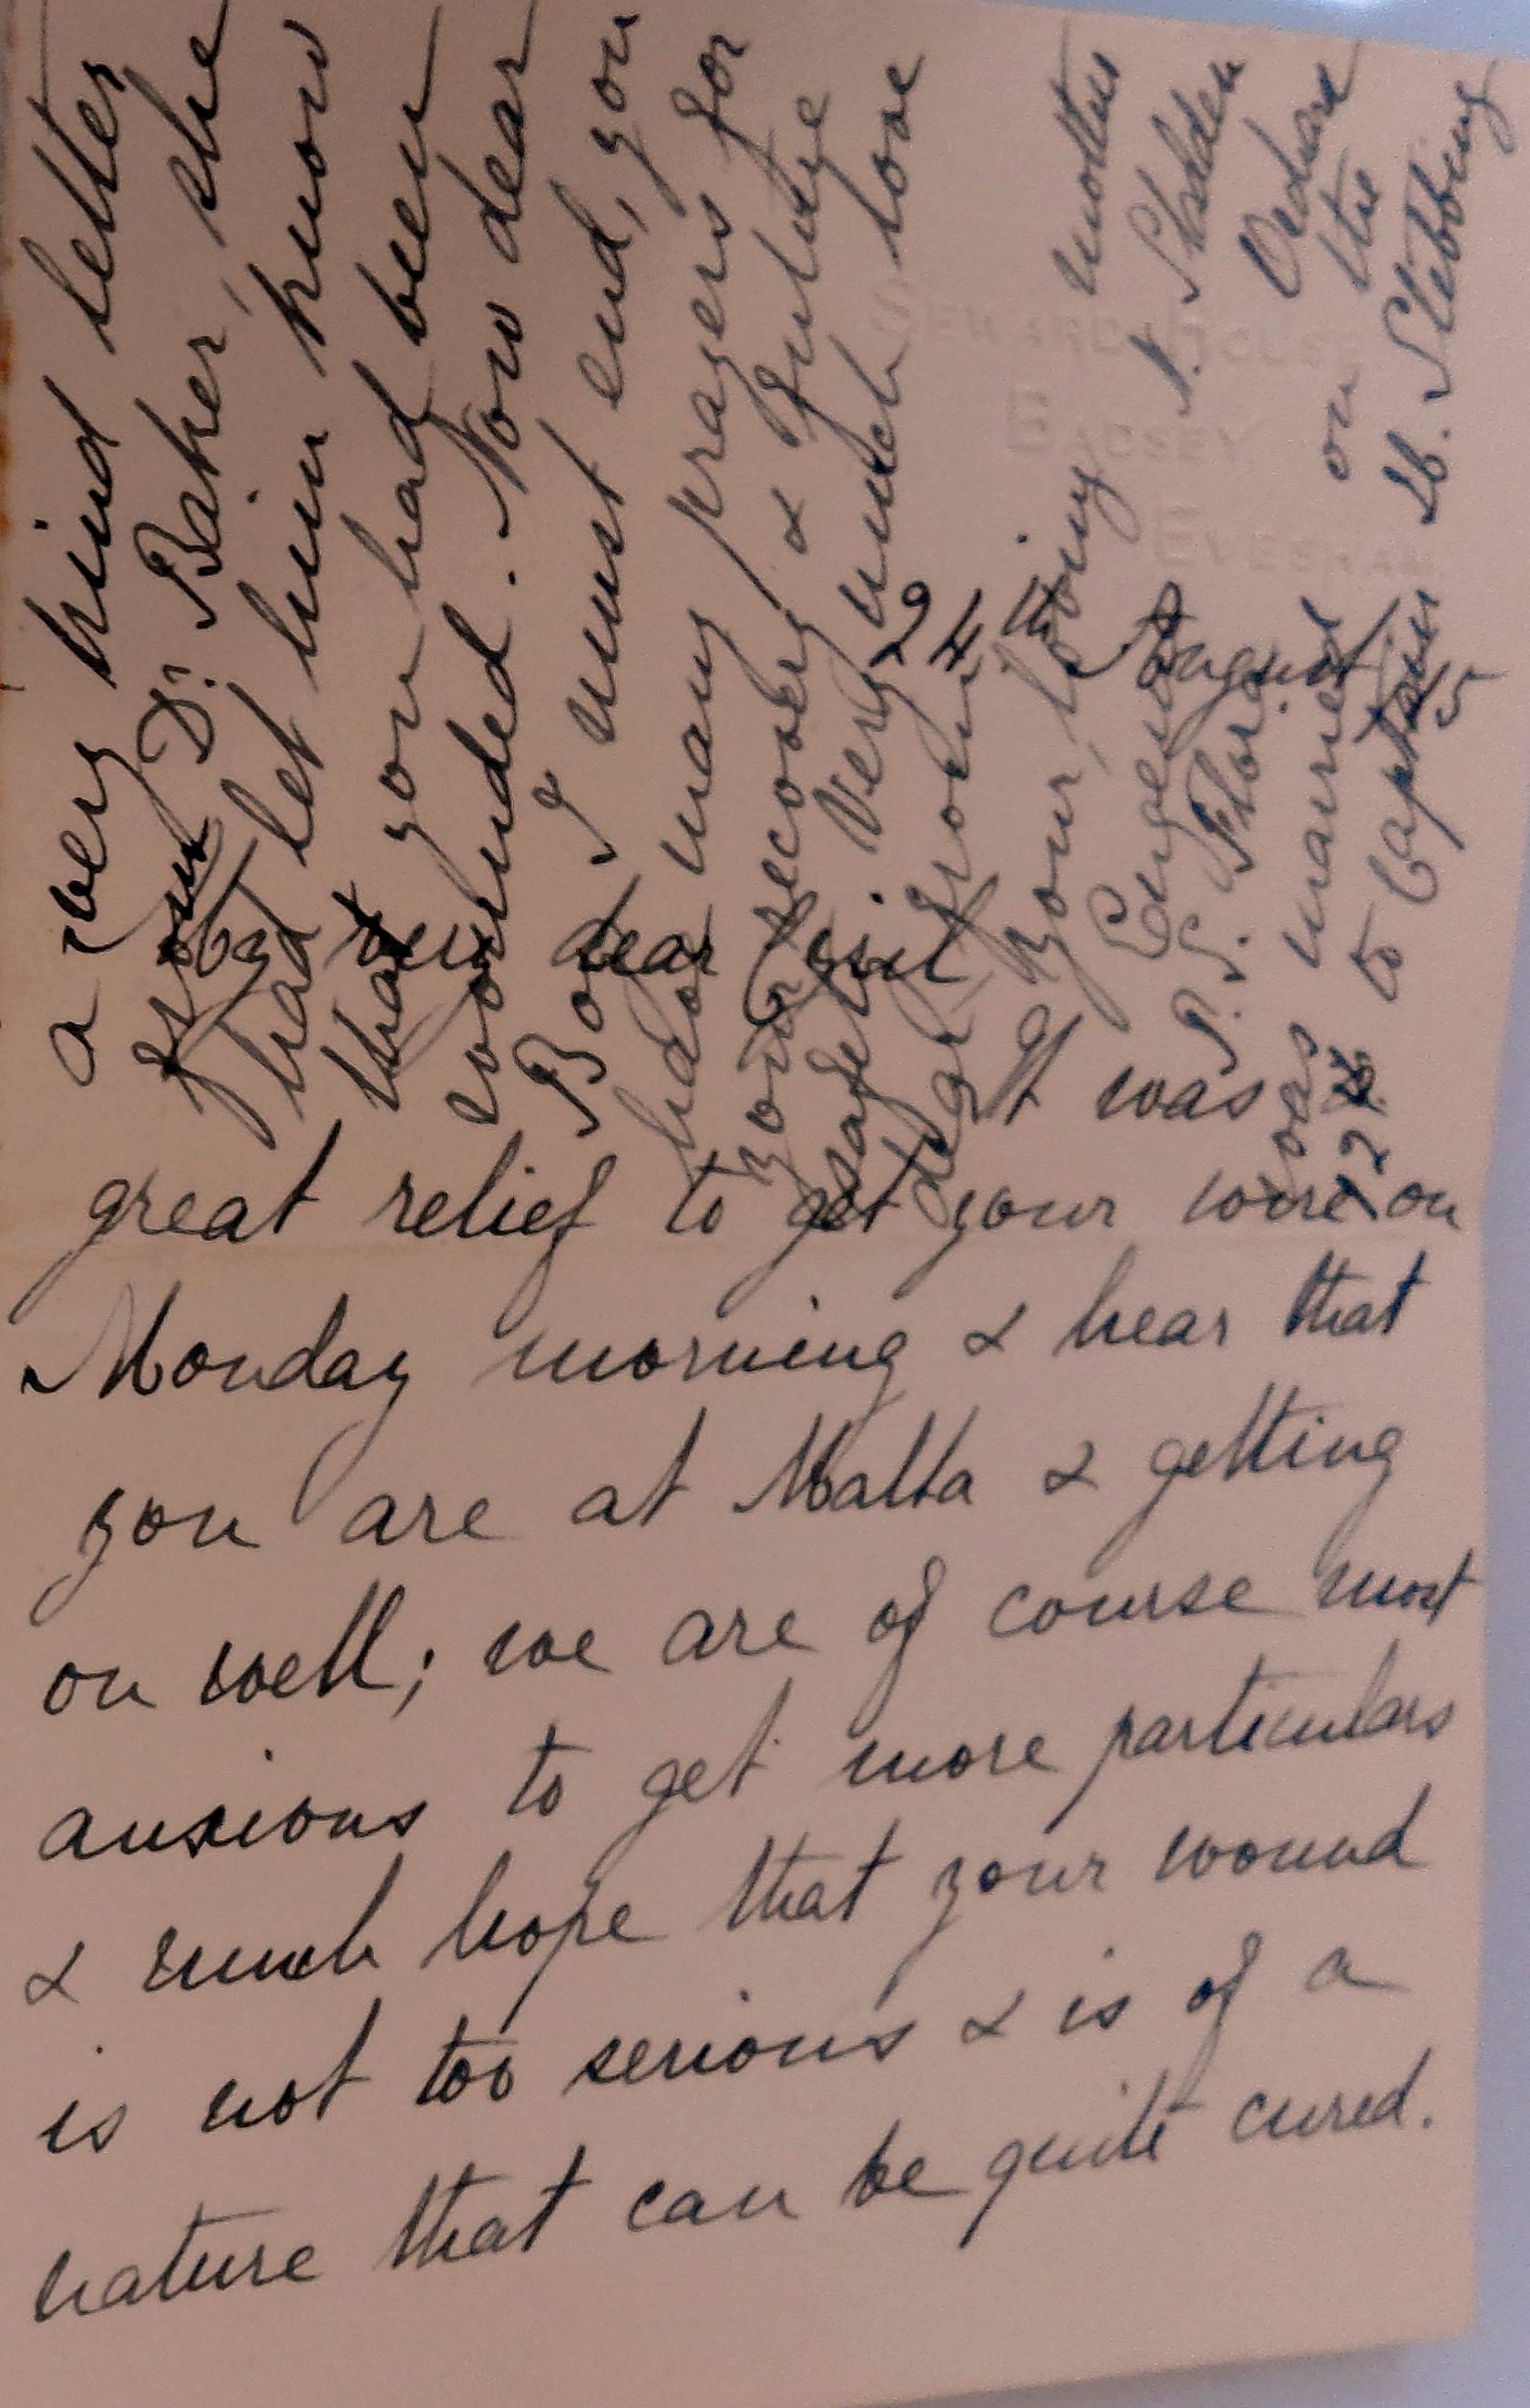 SEWARD HOUSE
BADSEY
EVESHAM
24th August 15
My very dear Cyril
It was
great relief to get your wire on
Monday morning & hear that
you are at Malta & getting
on well; we are of course most
anxious to get more particulars
& much hope that your wound
is not too serious & is of a
nature that can be quite cured.
a very kind letter
from Dr. Baker, she
had let him know
that you had been
wounded. Now dear
Boy I must end, you
have many prayers for
your recovery & future
safety. Very much love
dear from
your loving mother
Eugenie N. Sladden
P.S. Flora Orchard
was married on the
12th to Captain St. Stebbing